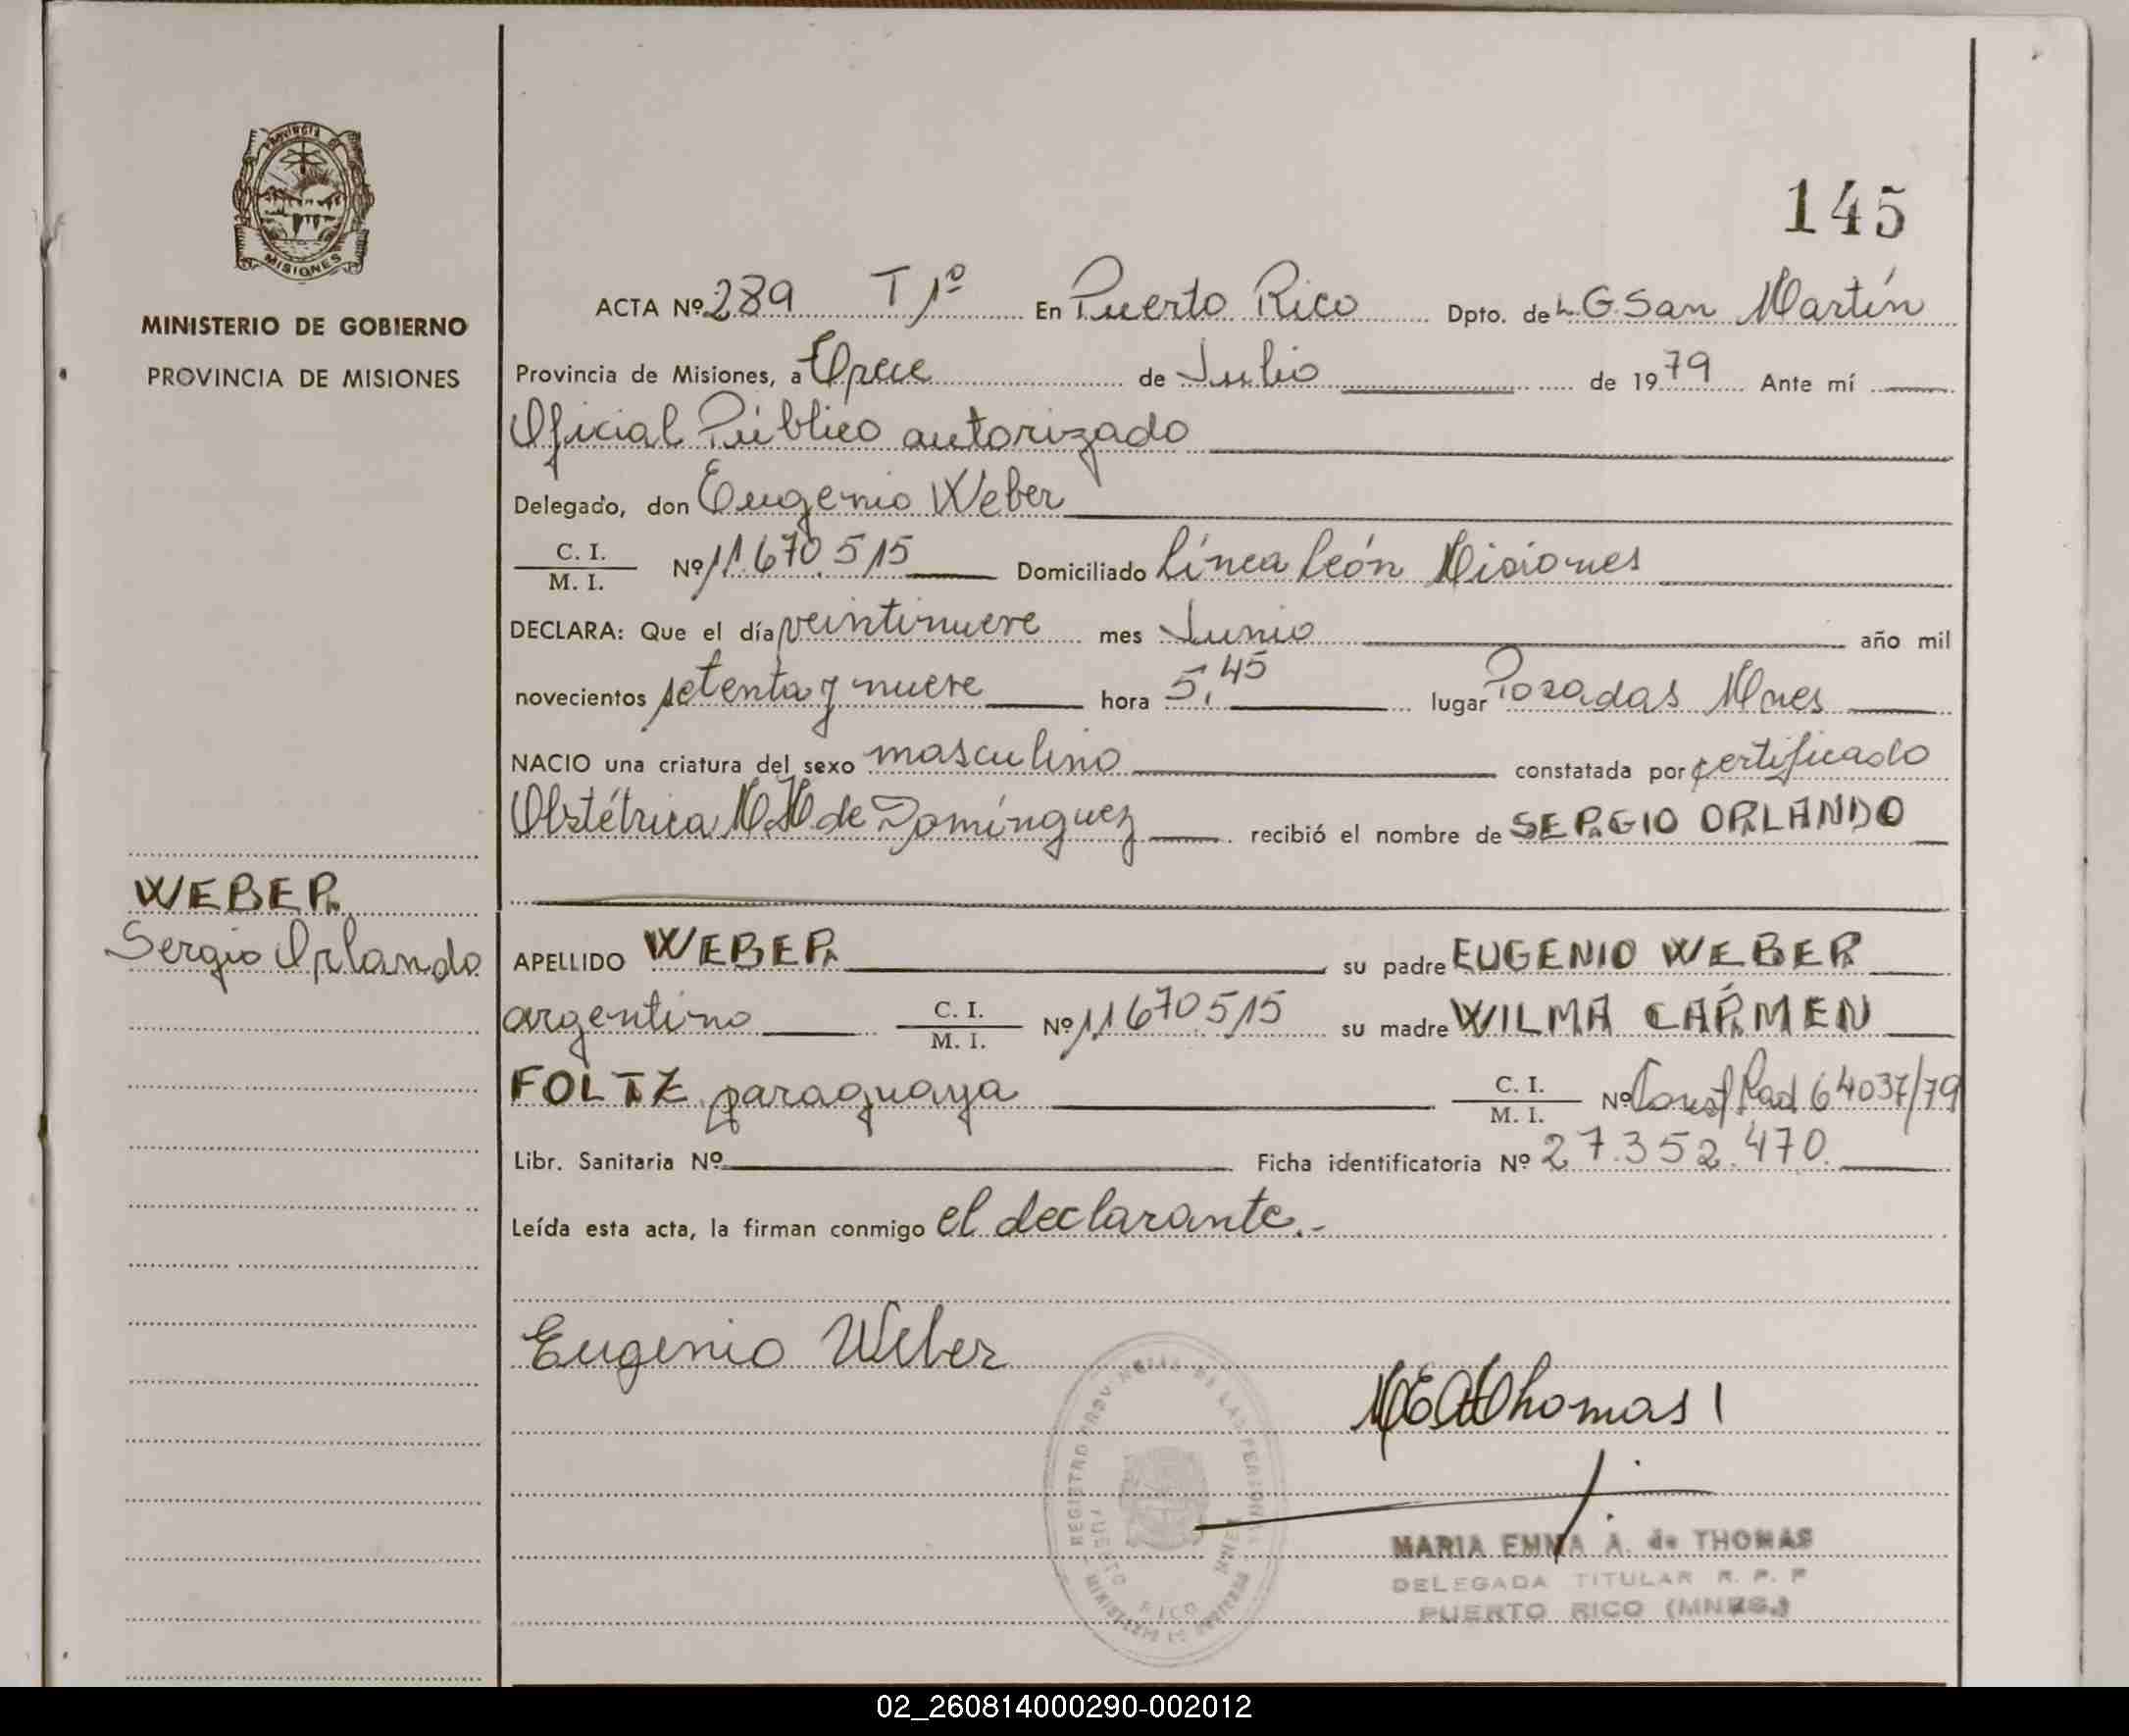 PROVINCIA DE
MISIONES
MINISTERIO DE GOBIERNO
PROVINCIA DE MISIONES
145
ACTA Nº 289 T 1º En Puerto Rico Dpto. de L. G. San Martín
Provincia de Misiones, a Once de Julio de 1979 Ante mí
Oficial Público autorizado
Delegado, don Eugenio Weber
C. I. / M. I. Nº 11.670.515 Domiciliado Línea León Misiones
DECLARA: Que el día veintinueve mes Junio año mil
novecientos setenta y nueve hora 5,45 lugar Posadas Mnes
NACIO una criatura del sexo masculino constatada por certificado
Obstétrica M. H. de Domínguez recibió el nombre de SERGIO ORLANDO
WEBER
Sergio Orlando
APELLIDO WEBER su padre EUGENIO WEBER
argentino C. I. / M. I. Nº 11.670.515 su madre WILMA CARMEN
FOLTZ paraguaya C. I. / M. I. Nº Const Rad 64037/79
Libr. Sanitaria Nº Ficha identificatoria Nº 27.352.470.
Leída esta acta, la firman conmigo el declarante.-
Eugenio Weber
M E A de Thomas
REGISTRO PROVINCIAL DE LAS PERSONAS
PUERTO RICO MNES
MINISTERIO DE GOBIERNO
MARIA EMMA A. de THOMAS
DELEGADA TITULAR R. P. P
PUERTO RICO (MNES.)
02_260814000290-002012